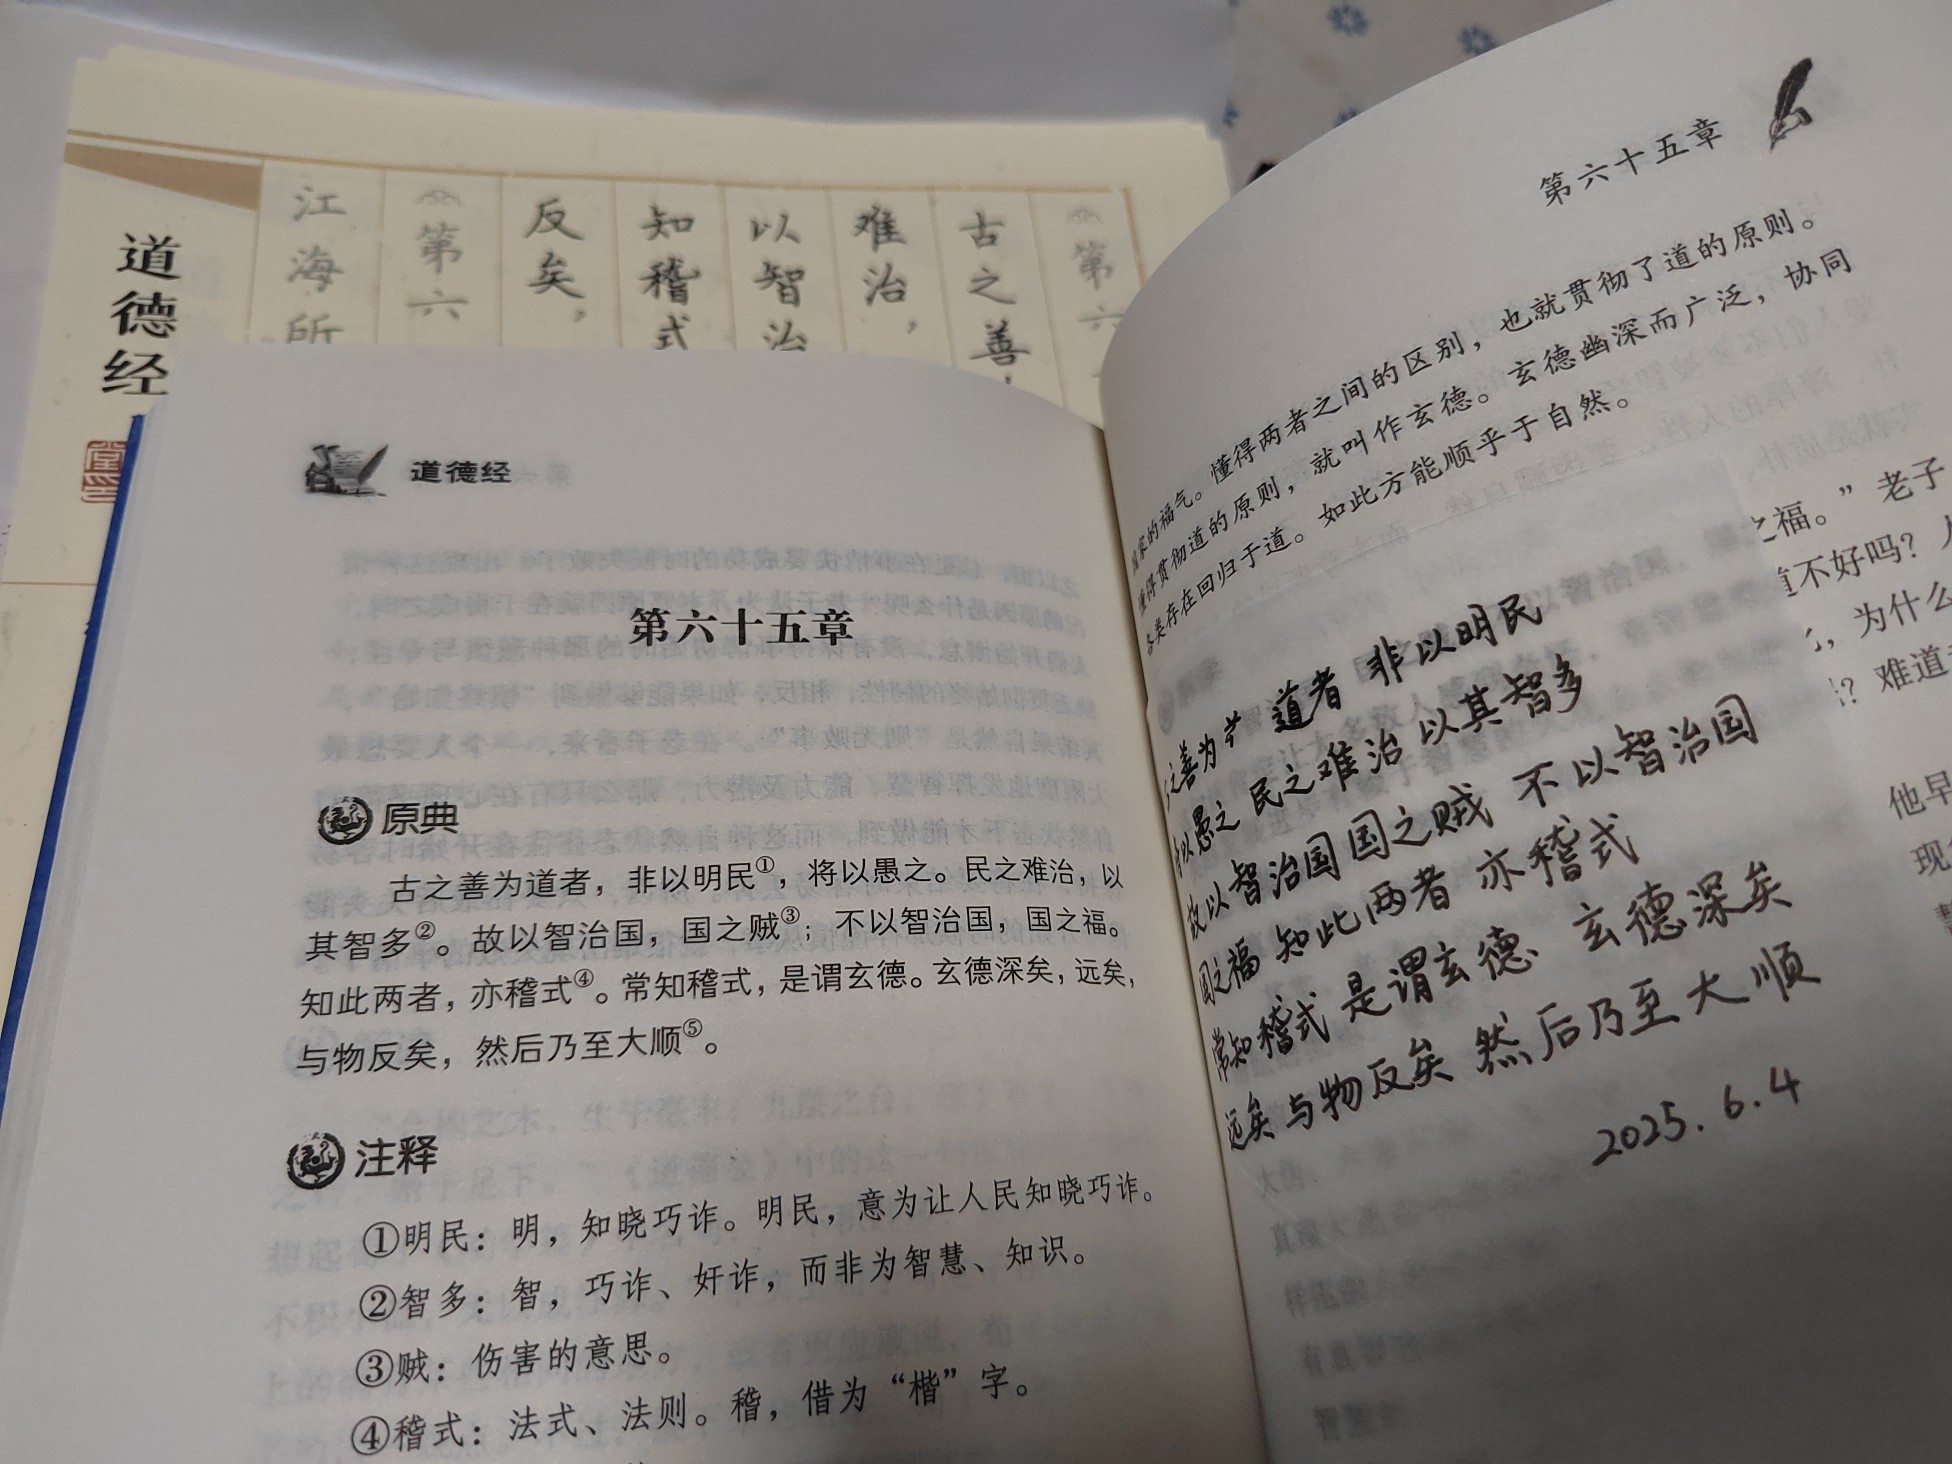 道德经
第六
古之善
难治，
以智治
知稽式
反矣，
第六
江海所
道德经
第六十五章
原典
古之善为道者，非以明民①，将以愚之。民之难治，以
其智多②。故以智治国，国之贼③；不以智治国，国之福。
知此两者，亦稽式④。常知稽式，是谓玄德。玄德深矣，远矣，
与物反矣，然后乃至大顺⑤。
注释
①明民：明，知晓巧诈。明民，意为让人民知晓巧诈。
②智多：智，巧诈、奸诈，而非为智慧、知识。
③贼：伤害的意思。
④稽式：法式、法则。稽，借为“楷”字。
第六十五章
家的福气。懂得两者之间的区别，也就贯彻了道的原则。
懂得贯彻道的原则，就叫作玄德。玄德幽深而广泛，协同
各类存在回归于道。如此方能顺乎于自然。
之善为 道者 非以明民
以愚之 民之难治 以其智多
故以智治国 国之贼 不以智治国
国之福 知此两者 亦稽式
常知稽式 是谓玄德 玄德深矣
远矣 与物反矣 然后乃至大顺
2025.6.4
之福。”老子
道不好吗？
，为什么
？难道
他早
现